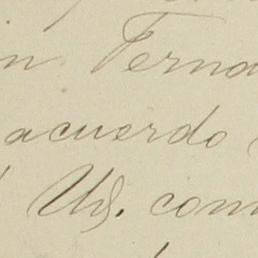 in Ferna
acuerdo
Ud. com